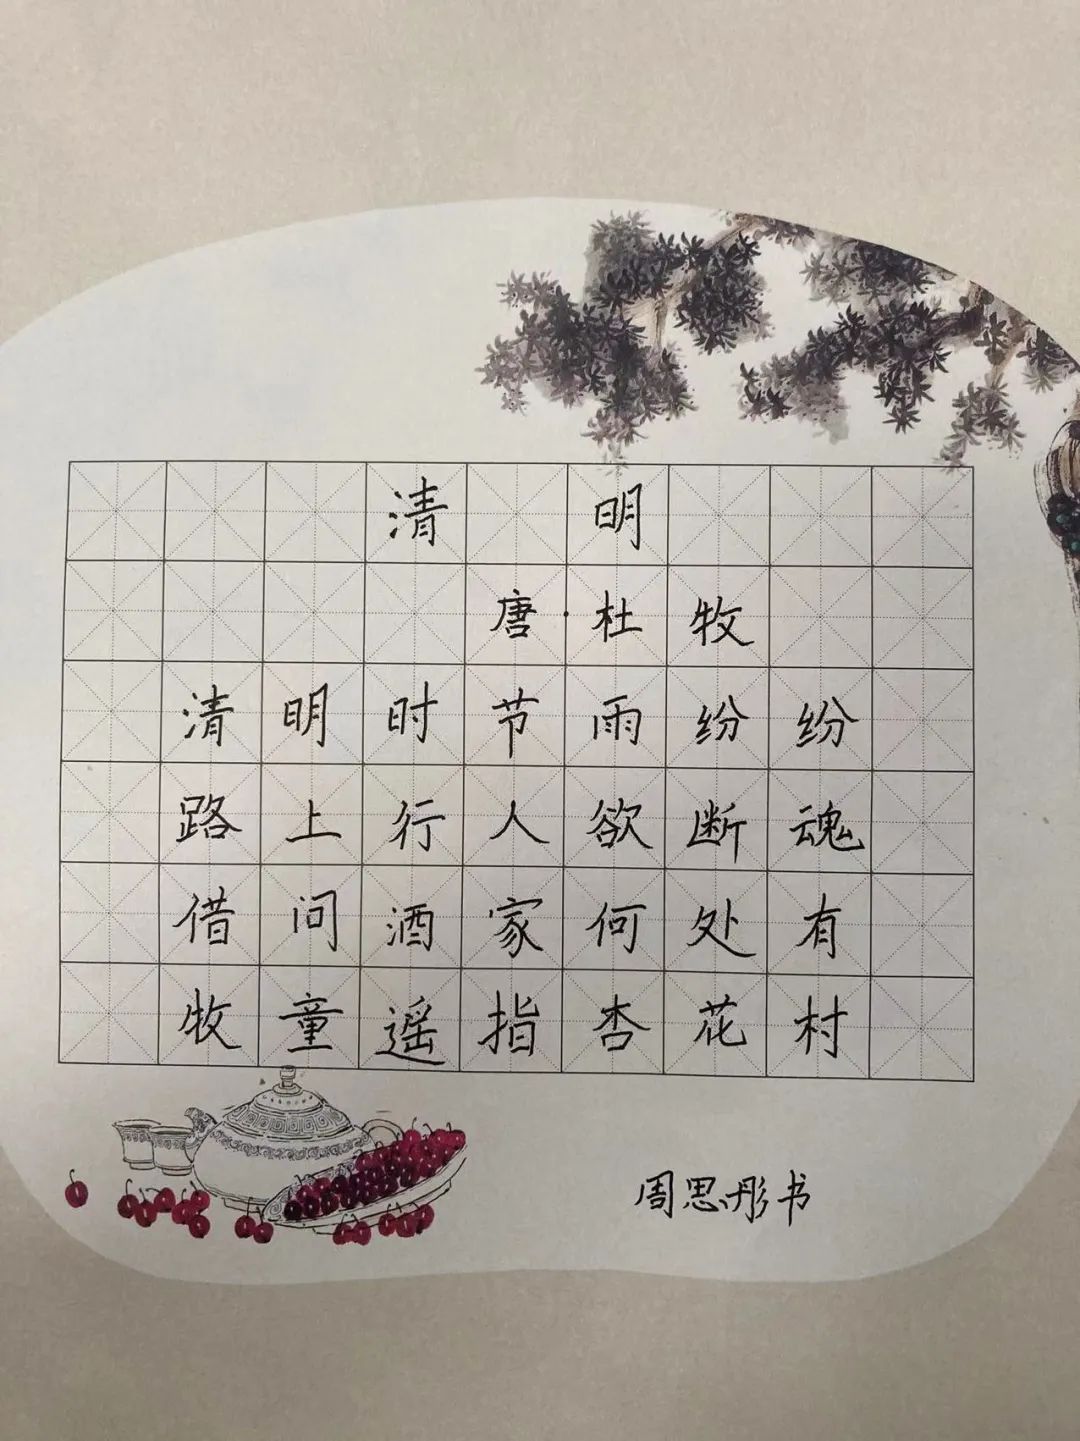 清 明
唐·杜牧
清明时节雨纷纷
路上行人欲断魂
借问酒家何处有
牧童遥指杏花村
周思彤书